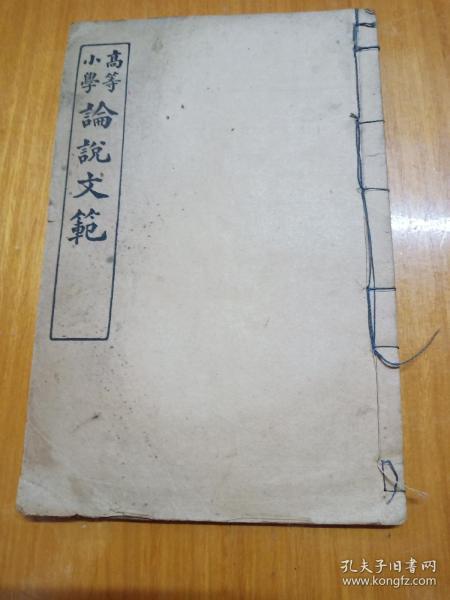 高等小學
論說文範
孔夫子旧书网
www.kongfz.com